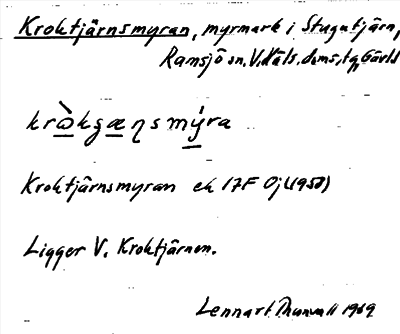 Kroktjärnsmyran, myrmark i Stugutjärn,
Ramsjö sn, V. Häls. doms., Gävlb
kròkȝæṇsmýra
Kroktjärnsmyran ek 17F 0j (1950)
Ligger V. Kroktjärnen.
Lennart Thunvall 1969